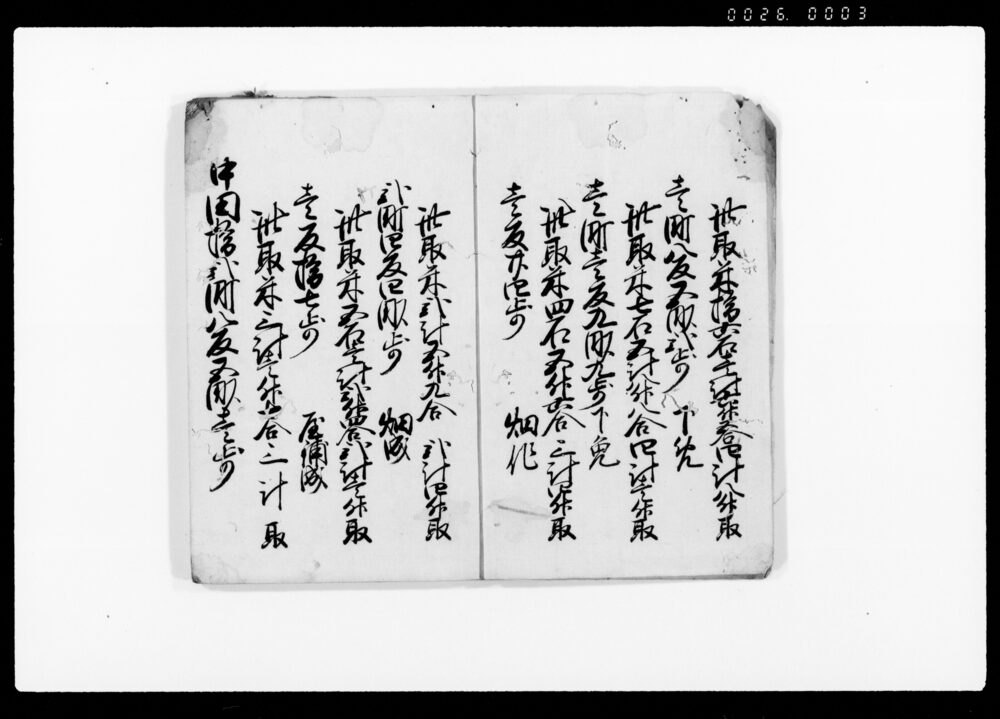 0026.0003
此取米拾六石壱斗弐升六合四斗八升取
壱町八反五畝弐歩 下免
此取米七石五斗弐升八合四斗壱升取
壱町壱反九畝九歩下免
此取米四石五升六合三斗四升取
壱反廿四歩 畑作
此取米弐斗五升九合 弐斗四升取
弐町四反四畝歩 畑成
此取米五石壱斗弐升四合弐斗壱升取
壱反拾七歩 屋補成
此取米三斗壱升六合三斗取
中田拾弐町八反五畝壱歩